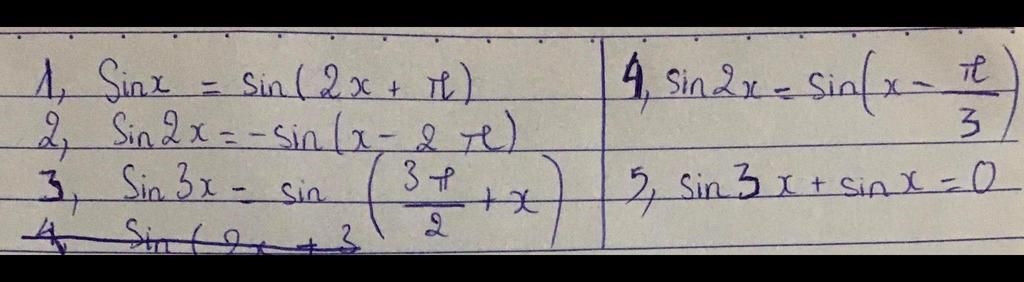 1, Sinx = sin(2x + π)
2, Sin2x = -sin(x - 2π)
3, Sin3x = sin(3π/2 + x)
4, Sin(2x + 3
4, sin2x = sin(x - π/3)
5, sin3x + sinx = 0